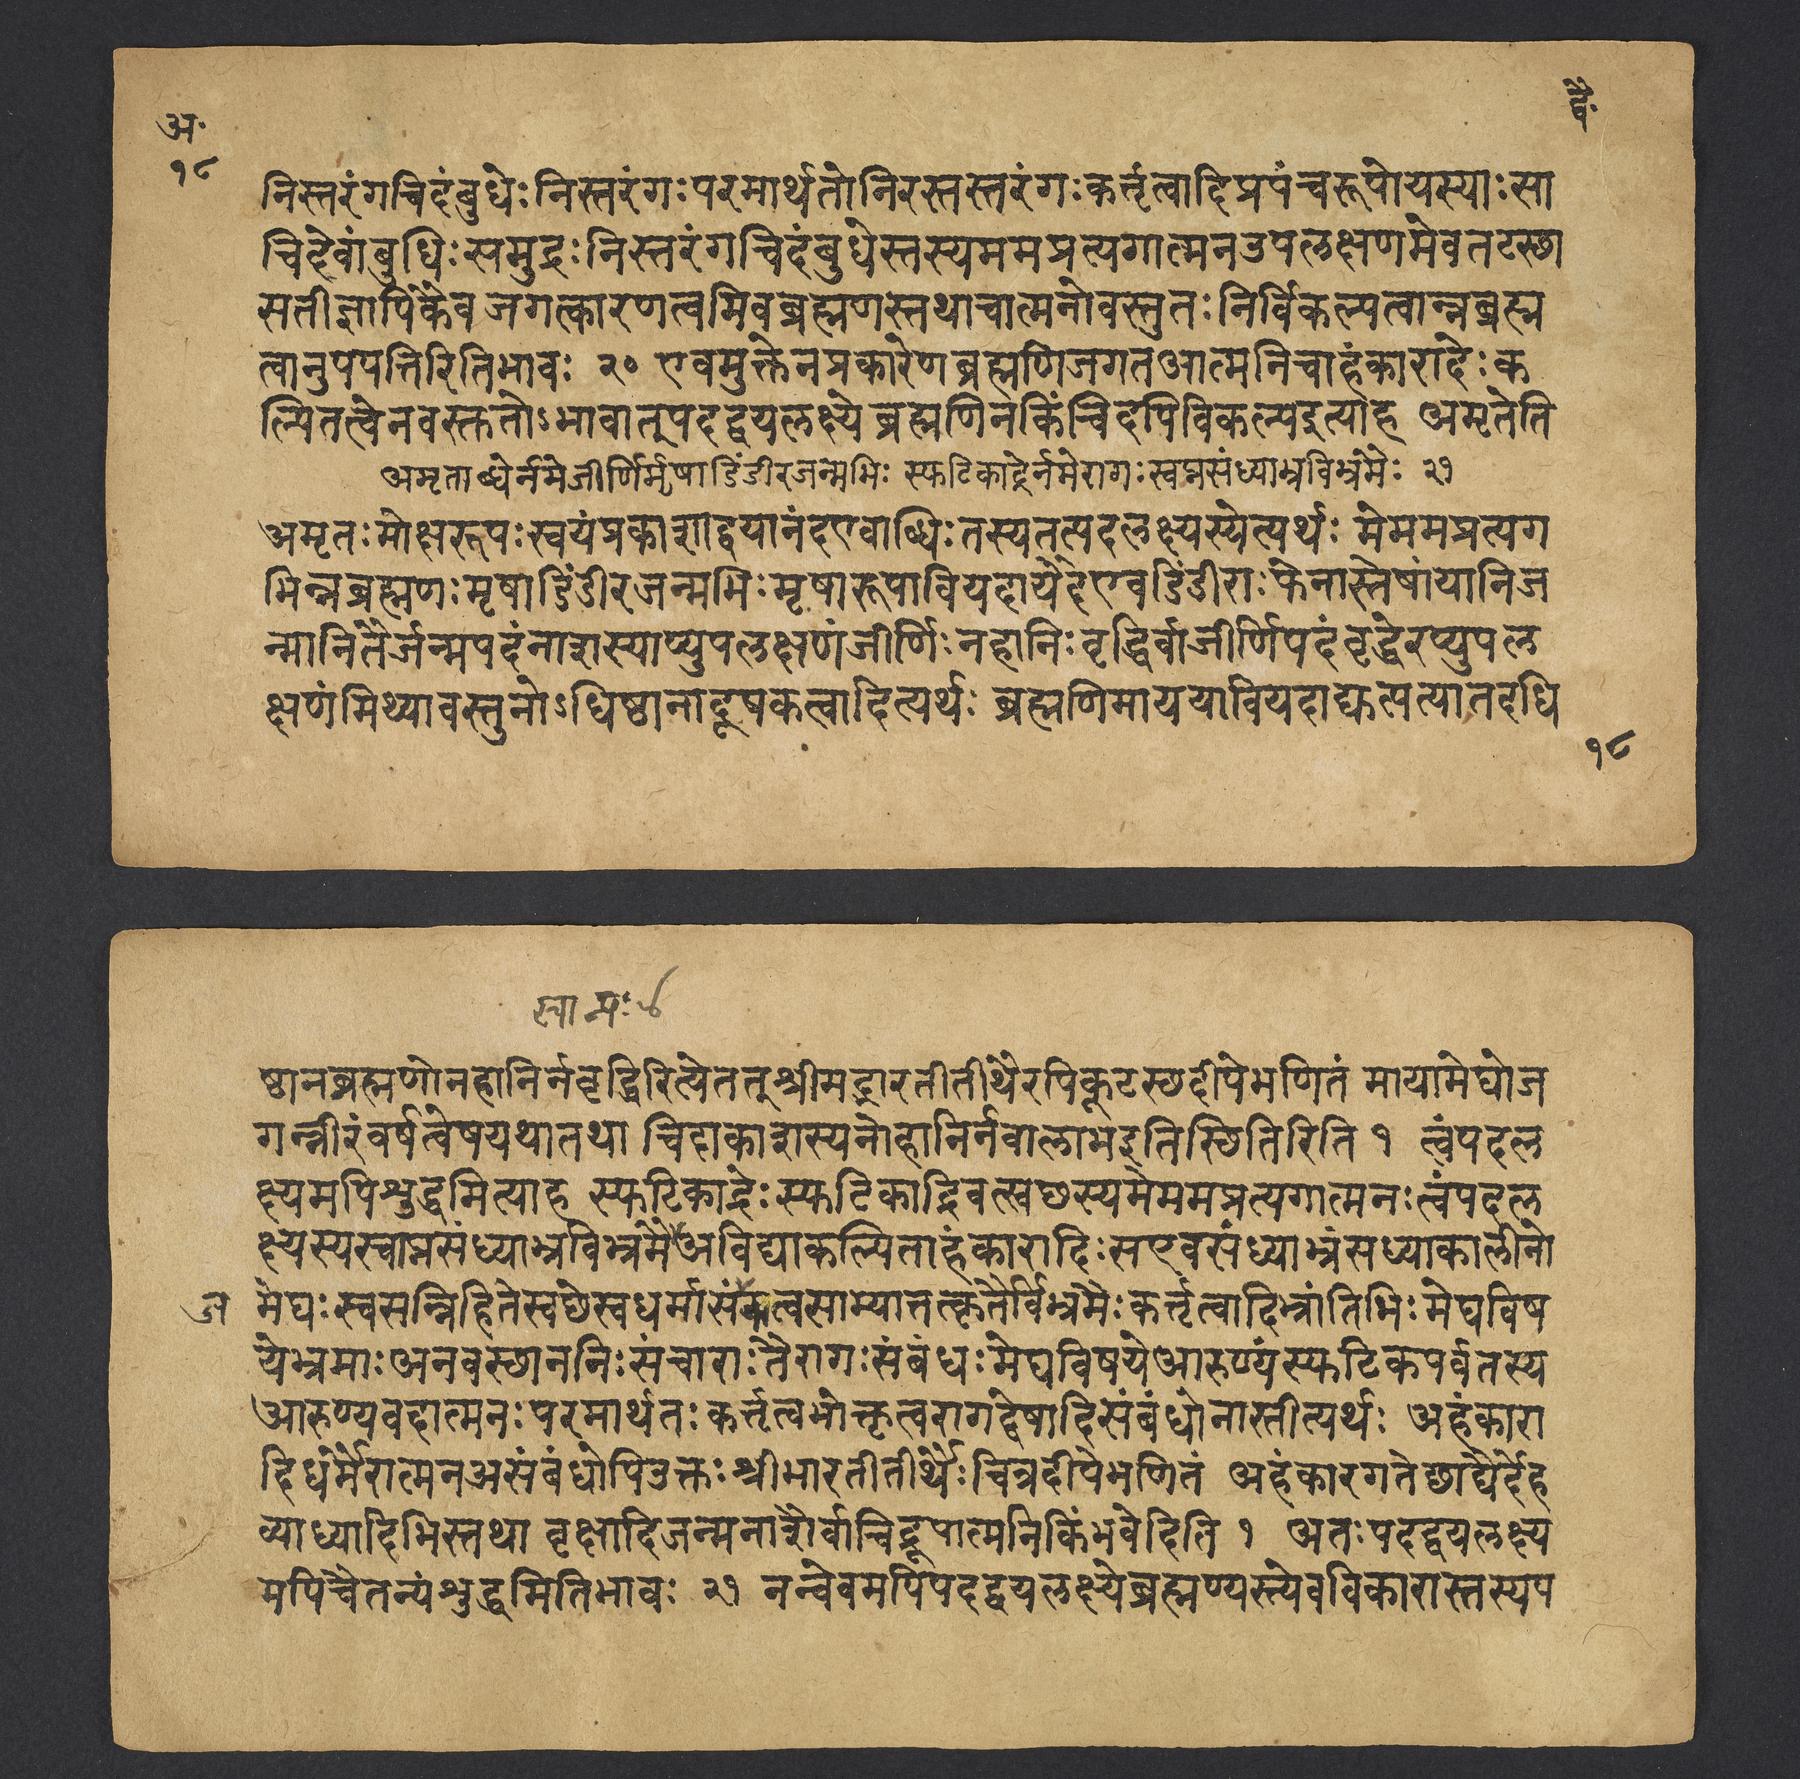 अ॰
द्वै॰
१८
निस्तरंगचिदंबुधेः निस्तरंगः परमार्थतोनिरस्तस्तरंगः कर्त्तृत्वादिप्रपंचरूपोयस्याः सा
चिदेवांबुधिः समुद्रः निस्तरंगचिदंबुधेस्तस्यममप्रत्यगात्मनउपलक्षणमेवतटस्छा
सतीज्ञापिकैवजगत्कारणत्वमिवब्रह्मणस्तथाचात्मनोवस्तुतः निर्विकल्पत्वान्नब्रह्म
त्वानुपपत्तिरितिभावः २० एवमुक्तेनप्रकारेणब्रह्मणिजगतआत्मनिचाहंकारादेः क
ल्पितत्वेनवस्क्ततोऽभावात्पदद्वयलक्ष्ये ब्रह्मणिनकिंचिदपिविकल्पइत्याह अमृतेति
अमृताब्धेर्नमेजीर्णिर्मृषाडिंडीरजन्मभिः स्फटिकाद्रेर्नमेरागः स्वप्नसंध्याभ्रविभ्रमैः २१
अमृतः मोक्षरूपः स्वयंप्रकाशाद्वयानंदएवाब्धिः तस्यतत्पदलक्ष्यस्येत्यर्थः मेममप्रत्यग
भिन्नब्रह्मणः मृषाडिंडीरजन्मभिः मृषारूपावियदादयेहएवडिंडीराः फेनास्तेषांयानिज
न्मानितैर्जन्मपदंनाशस्याप्युपलक्षणंजीर्णिः नहानिः वृद्धिर्वाजीर्णिपदंवृद्धेरप्युपल
क्षणंमिथ्यावस्तुनोऽधिष्ठानादूषकत्वादित्यर्थः ब्रह्मणिमाययावियदाद्युत्पत्यातदधि
१८
ष्ठानब्रह्मणोनहानिर्नवृद्धिरित्येतत्तुश्रीमद्भारतीतीर्थैरपिकूटस्छदीपेभणितं मायामेघोज
गन्नीरंवर्षत्वेषयथातथा चिदाकाशस्यनोहानिर्नवालाभइतिस्छितिरिति १ त्वंपदल
क्ष्यमपिशुद्धमित्याह स्फटिकाद्रेः स्फटिकाद्रिवत्स्वछस्यमेममप्रत्यगात्मनः त्वंपदल
क्ष्यस्यस्वाप्नसंध्याभ्रविभ्रमैःअविद्याकल्पिताहंकारादिः सएवसंध्याभ्रंसध्याकालीनो
मेघः स्वसन्निहितेस्वछेस्वधर्मासंजकत्वसाम्यात्तत्कृतैर्विभ्रमैः कर्त्तृत्वादिभ्रांतिभिः मेघविष
येभ्रमाः अनवस्छाननिः संचाराः तैरागः संबंधः मेघविषयेआरुण्यंस्फटिकपर्वतस्य
आरुण्यवदात्मनः परमार्थतः कर्त्तृत्वभोक्तृत्वरागद्वेषादिसंबंधोनास्तीत्यर्थः अहंकारा
दिधर्मैरात्मनअसंबंधोपिउक्तः श्रीभारतीतीर्थैः चित्रदीपेभणितं अहंकारगतेछाद्यैर्देह
व्याध्यादिभिस्तथा वृक्षादिजन्मनाशैर्वाचिद्रूपात्मनिकिंभवेदिति १ अतः पदद्वयलक्ष्य
मपिचैतन्यंशुद्धमितिभावः २१ नन्वेवमपिपदद्वयलक्ष्येब्रह्मण्यस्त्येवविकारास्तस्यप